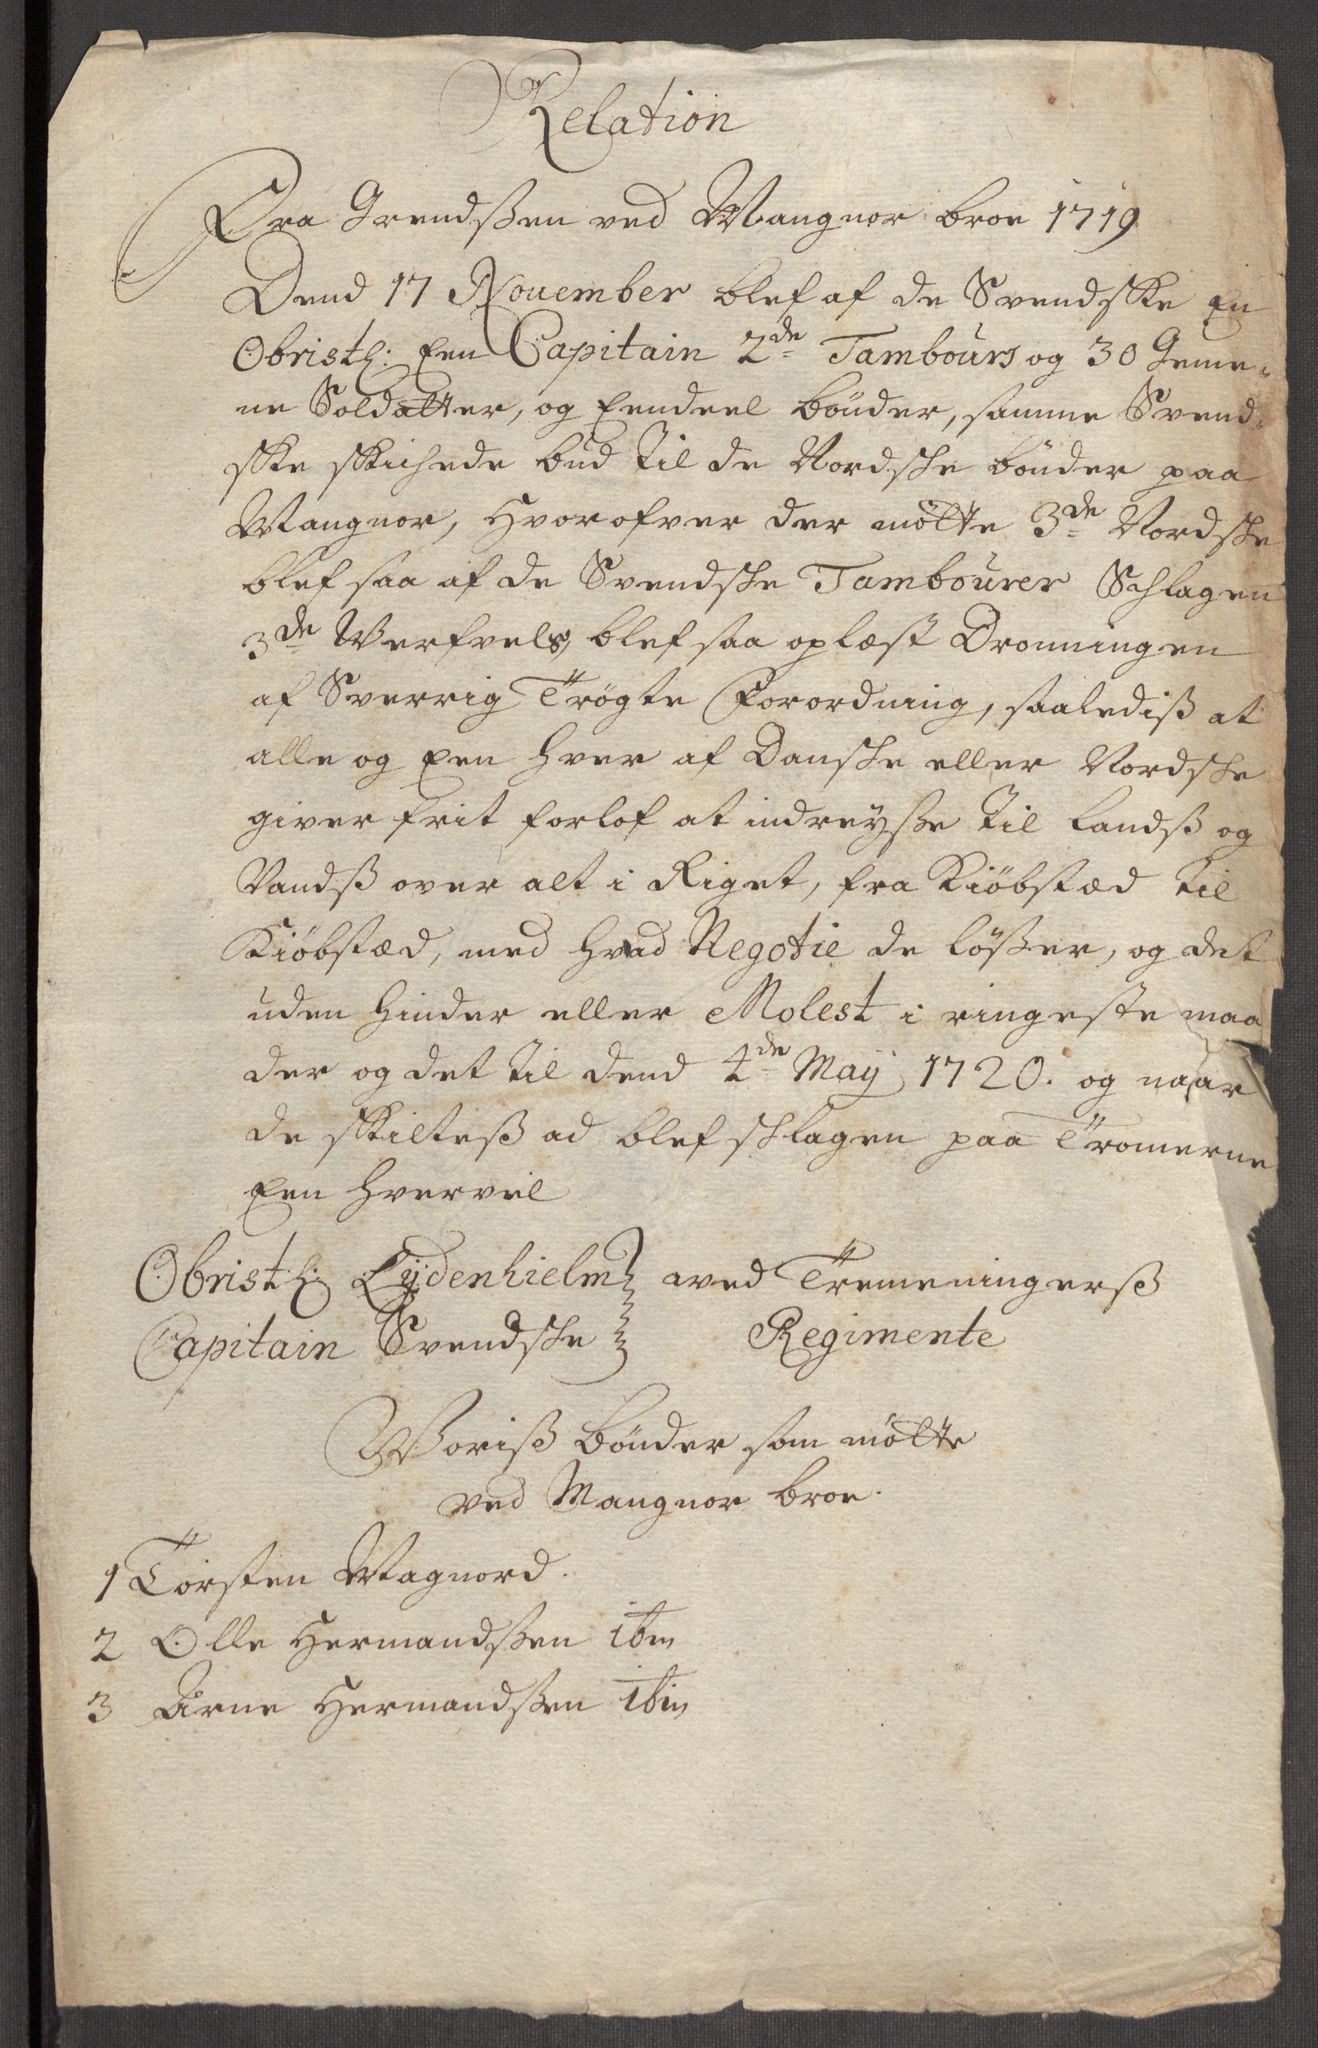 Relation
Fra Grendsßen ved Mangnor broe 1719
Dend 17 November blef af de Svendske En
Obristl: Een Capitain 2de Tambours og 30 Geme-
ne Soldatter, og Eendeel bønder, samme Svend-
ske skichede bud til de Nordsche bønder paa
Mangnor, Hvorofver der møtte 3de Nordsche
blef saa af de Svendsche Tambourer Schlagen
3de Verfvels, blef saa oplæst Dronningen
af Sverrig Trögte Forordning, saalediß at
alle og Een hver af Dansche eller Nordsche
giver frit forlof at indreyße til Landß og
Vandß over alt i Riget, fra Kiøbstæd til
Kiøbstæd, med hvad Negotie de lößer, og det
uden Hinder eller Molest i ringeste maa
der og det til dend 4de Maij 1720. og naar
de skilteß ad blef schlagen paa Tromerne
Een hvervel
Obristl: Lydenhielm } aved Tremeningerß
Capitain Svendsche } Regimente
Voriß bønder som møtte
ved Mangnor broe.
1 Torsten Magnord.
2 Olle Hermandsßen ibm
3 Arne Hermandsßen ibm